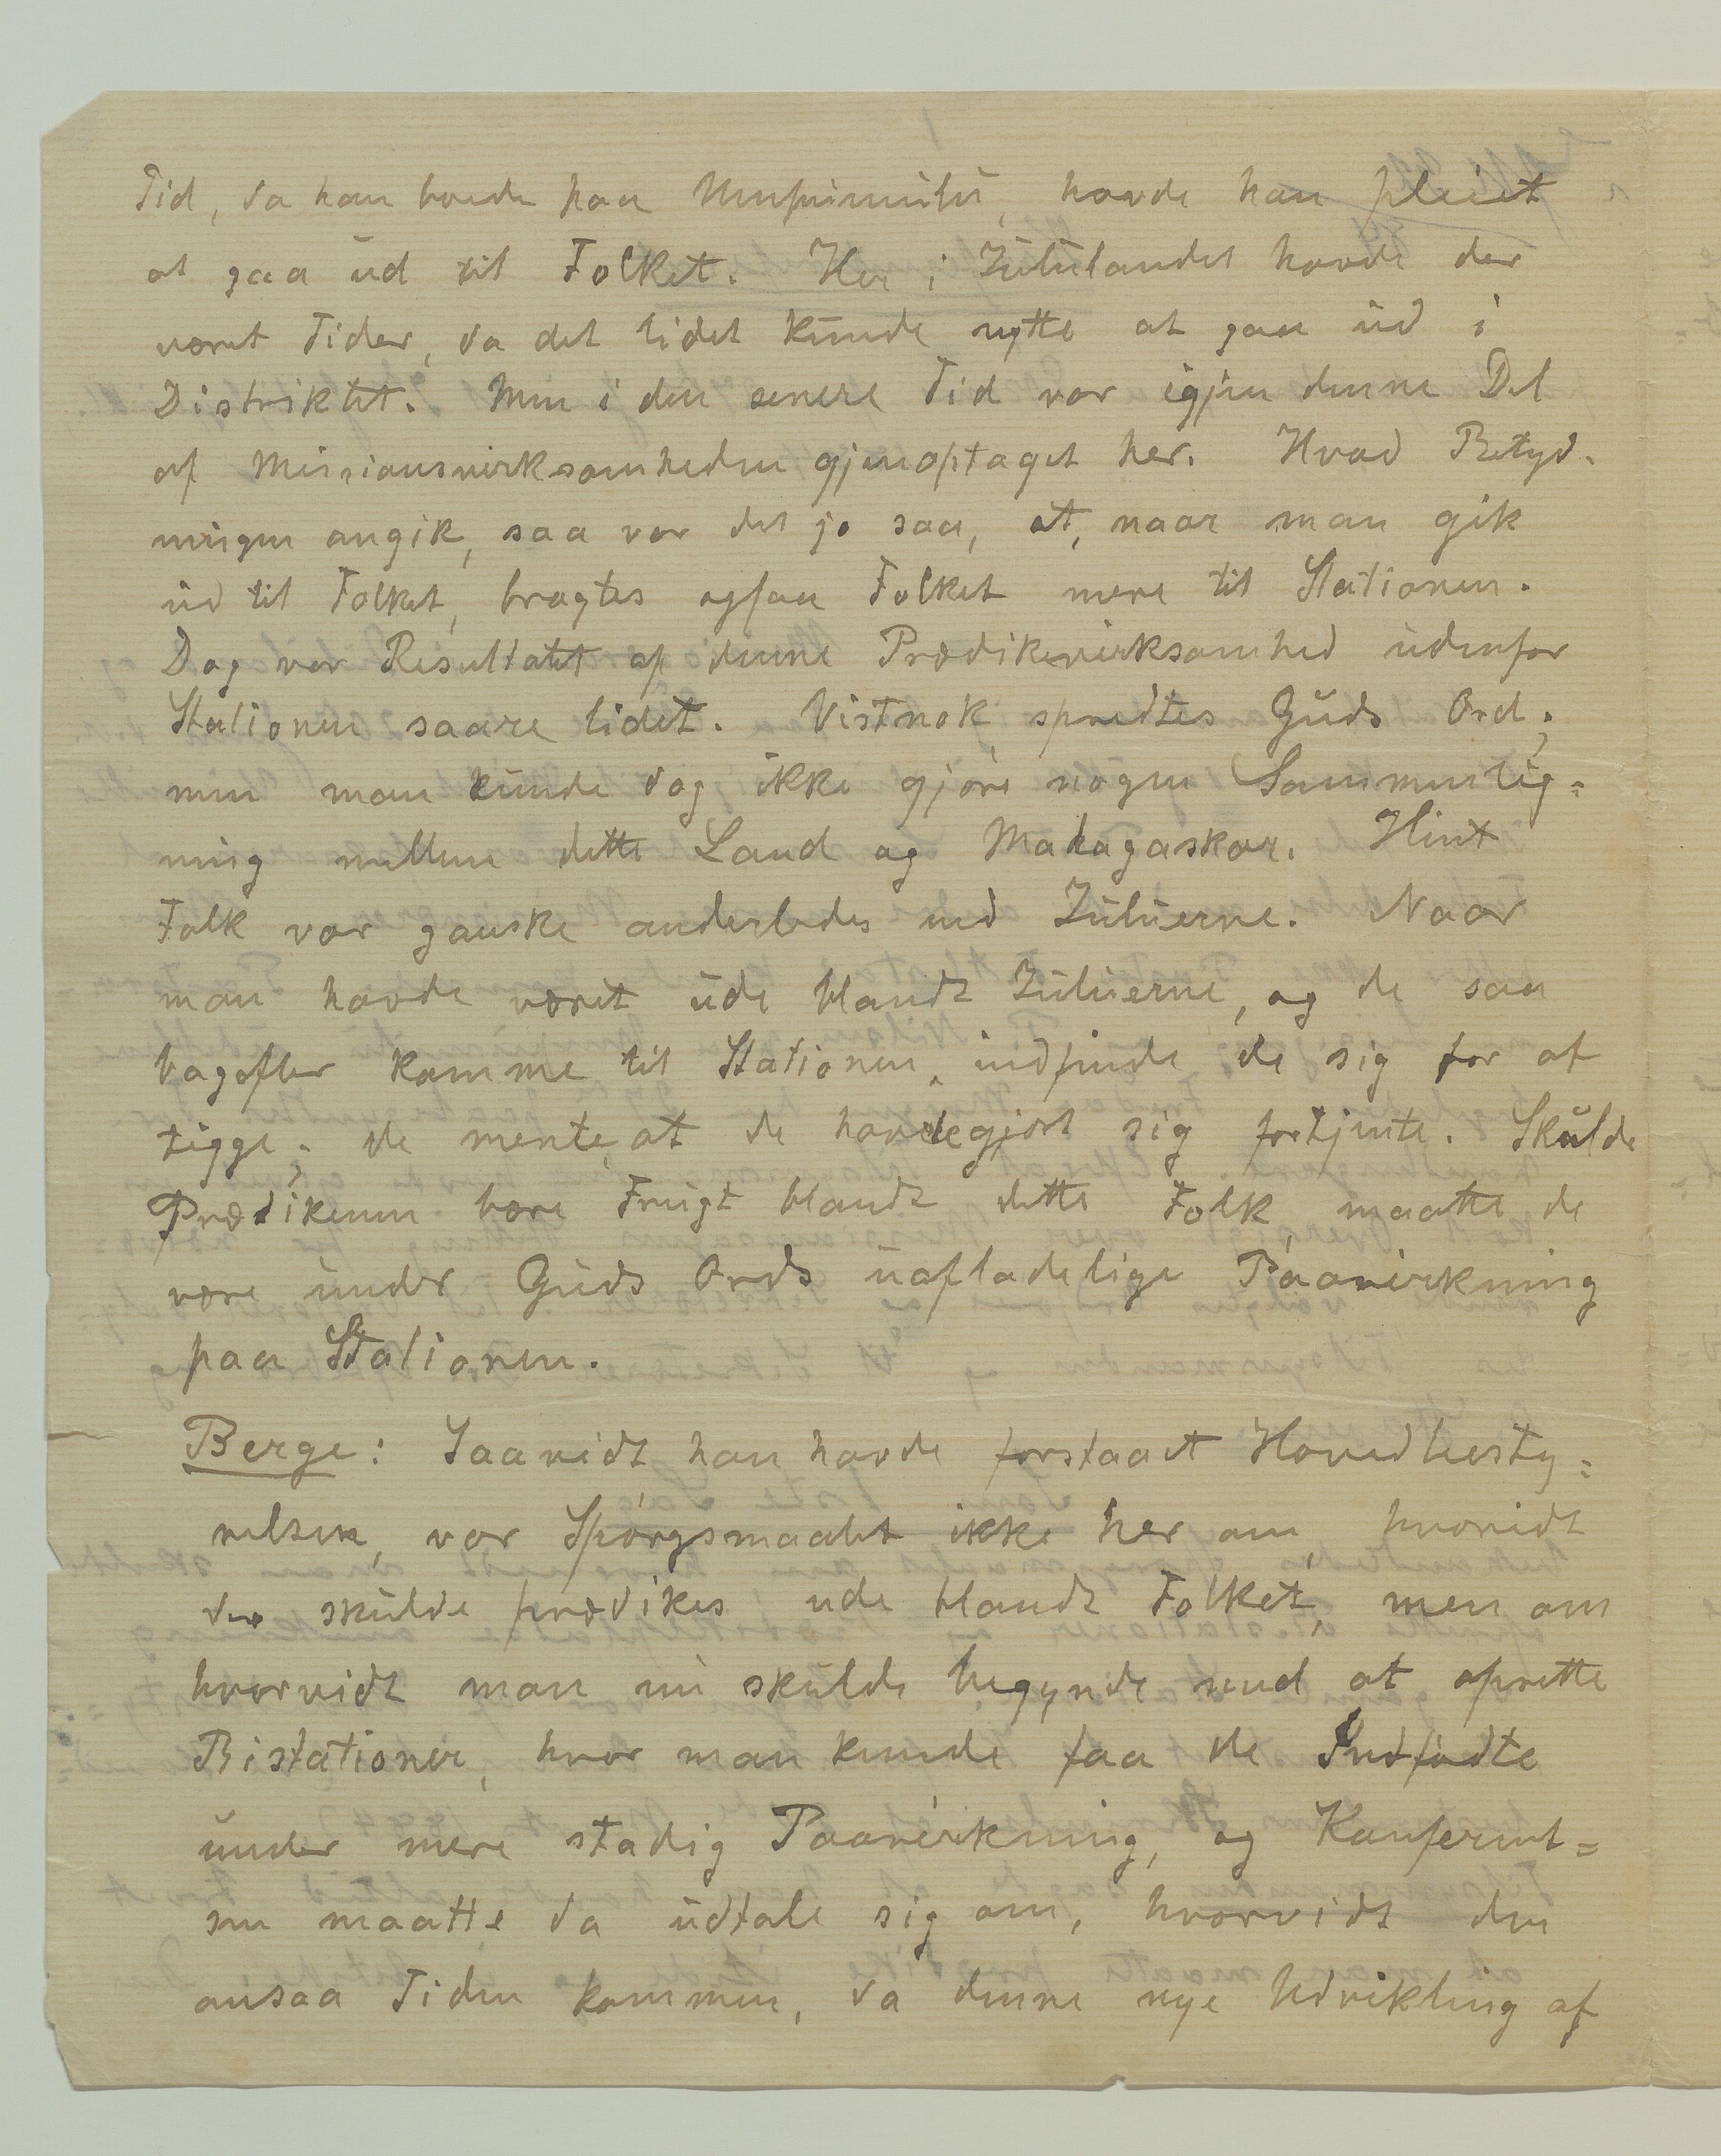 Tid, da han boede paa Umpumulu, havde han pleiet
at gaa ud til Folket. Her i Zululandet havde der
været Tider, da det lidet kunde nytte at gaa ud i
Distriktet. Men i den senere Tid var igjen denne Del
af Missionsvirksomheden gjenoptaget her. Hvad Betyd-
ningen angik, saa var det jo saa, at, naar man gik
ud til Folket, bragtes ogsaa Folket mere til Stationen.
Dog var Resultatet af denne Prædikevirksomhed udenfor
Stationen saare lidet. Vistnok spredtes Guds Ord;
men man kunde dog ikke gjøre nogen Sammenlig=
ning mellem dette Land og Madagaskar. Hint
Folk var ganske anderledes end Zuluerne. Naar
man havde været ude blandt Zuluerne, og de saa
bagefter komme til Stationen, indfinde de sig for at
tigge; de mente, at de havde gjort sig fortjente. Skulde
Prædikenen bære Frugt blandt dette Folk, maatte de
være under Guds Ords uafladelige Paavirkning
paa Stationen.
Berge: Saavidt han havde forstaaet Hovedbesty=
relsen, var Spørgsmaalet ikke her om, hvorvidt
der skulde prædikes ude blandt Folket, men om
hvorvidt man nu skulde begynde med at oprette
Bistationer, hvor man kunde faa de Indfødte
under mere stadig Paavirkning, og Konferent=
sen maatte da udtale sig om, hvorvidt den
ansaa Tiden kommen, da denne nye Udvikling af